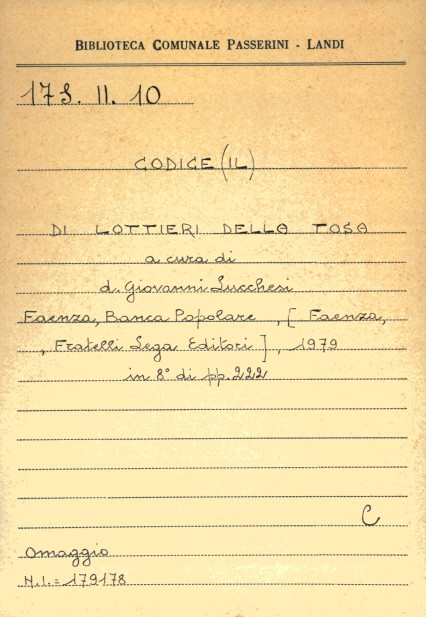 BIBLIOTECA COMUNALE PASSERINI - LANDI
17S. II. 10
CODICE (IL)
DI LOTTIERI DELLA TOSA
a cura di
d. Giovanni Lucchesi
Faenza, Banca Popolare , [ Faenza,
, Fratelli Lega Editori ] , 1979
in 8° di pp. 222
C
Omaggio
N.I. = 179178